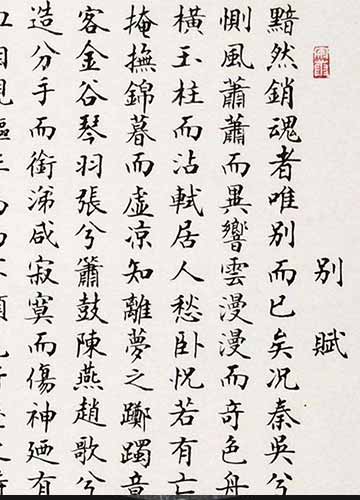 别賦
黯然銷魂者唯别而已矣况秦吳兮
惻風蕭蕭而異響雲漫漫而奇色舟
橫玉柱而沾軾居人愁卧怳若有亡
掩撫錦暮而虛凉知離夢之躑躅意
客金谷琴羽張兮簫鼓陳燕趙歌兮
造分手而銜涕咸寂寞而傷神廼有